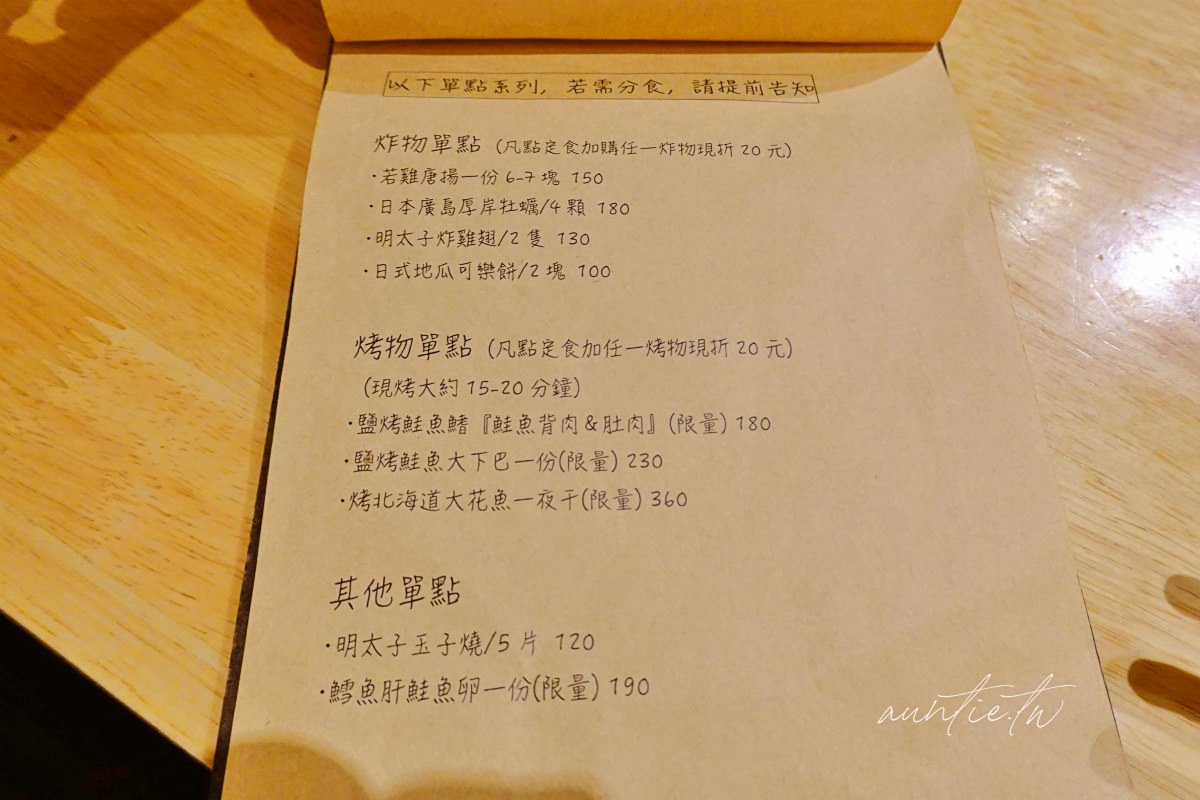 以下單點系列, 若需分食, 請提前告知
炸物單點 (凡點定食加購任一炸物現折 20 元)
·若雞唐揚一份 6-7 塊 150
·日本廣島厚岸牡蠣/4 顆 180
·明太子炸雞翅/2 隻 130
·日式地瓜可樂餅/2 塊 100
烤物單點 (凡點定食加任一烤物現折 20 元)
(現烤大約 15-20 分鐘)
·鹽烤鮭魚鰭『鮭魚背肉&肚肉』(限量) 180
·鹽烤鮭魚大下巴一份(限量) 230
·烤北海道大花魚一夜干(限量) 360
其他單點
·明太子玉子燒/5 片 120
·鱈魚肝鮭魚卵一份(限量) 190
auntie.tw